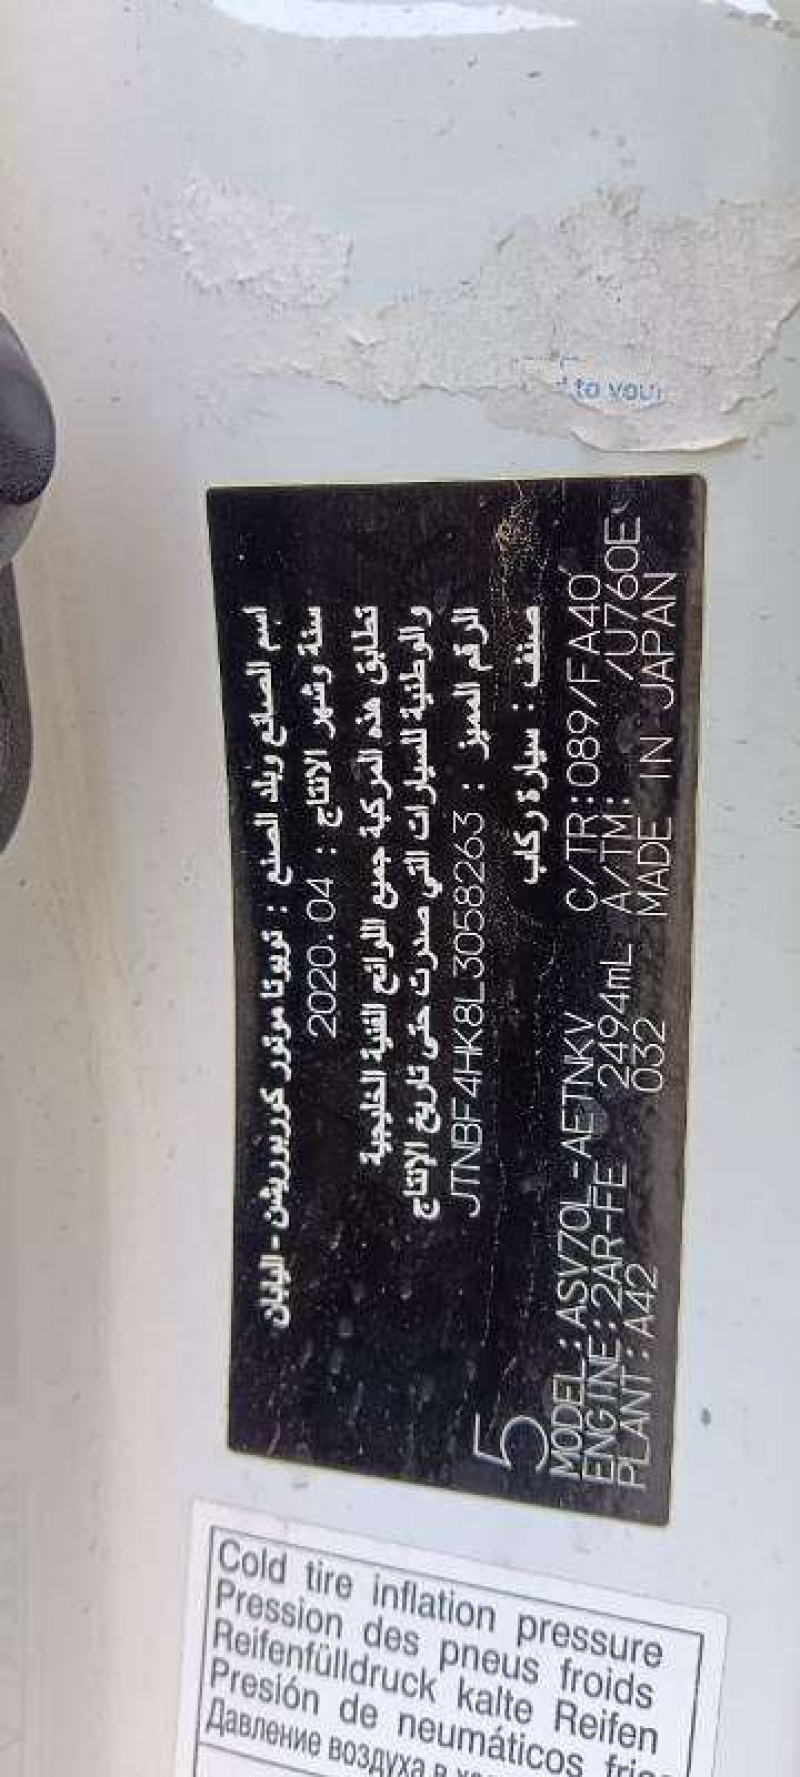 to you
اسم الصانع وبلد الصنع : تويوتا موتور كوربوريشن - اليابان
سنة وشهر الانتاج : 2020.04
تطابق هذه المركبة جميع اللوائح الفنية الخليجية
والوطنية للسيارات التي صدرت حتى تاريخ الإنتاج
الرقم المميز : JTNBF4HK8L3058263
صنف : سيارة ركاب
5
MODEL:ASV70L-AETNKV C/TR:089/FA40
ENGINE:2AR-FE 2494mL A/TM: /U760E
PLANT:A42 032 MADE IN JAPAN
Cold tire inflation pressure
Pression des pneus froids
Reifenfülldruck kalte Reifen
Presión de neumáticos
Давление воздуха в